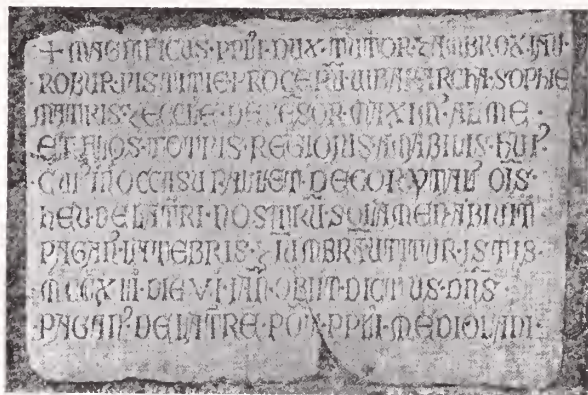 + MAGNIFICUS · PPLI · DUX · TUTOR · 7 AMBROX · IAN
ROBUR · IUSTITIE · PROCERŪ
MATRIS · 7 ECCLIE · DEFESOR · MAXIM' ALME ·
ET · FLOS · TOTIUS · REGIONIS · AMABILIS · HUI'
CUI' IN OCCASU PALLET · DECOR YTAL' OIS
HEU · DE LATRI · NOSTRŪ · SOLAMEN · ABIUIT
PAGAN' LATEBRIS · 7 UTITUR · ISTIS ·
DIE VI · IAN · OBIIT · DICTUS · DNS
PAGAN' DE LATRE · POT · PPLI · MEDIOLANI ·